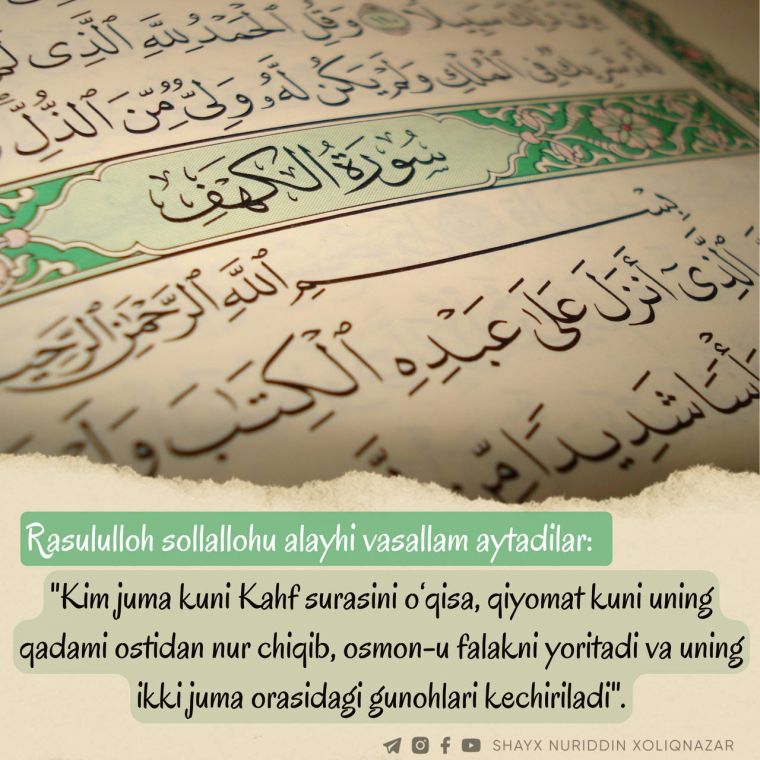 سَبِيلًا وَقُلِ الْحَمْدُ لِلَّهِ الَّذِي
شَرِيكٌ فِي الْمُلْكِ وَلَمْ يَكُن لَّهُ وَلِيٌّ مِّنَ الذُّلِّ
سُورَةُ الْكَهْفِ
بِسْمِ اللَّهِ الرَّحْمَٰنِ الرَّحِيمِ
الَّذِي أَنزَلَ عَلَىٰ عَبْدِهِ الْكِتَابَ
بَأْسًا شَدِيدًا مِّن
Rasululloh sollallohu alayhi vasallam aytadilar:
"Kim juma kuni Kahf surasini o‘qisa, qiyomat kuni uning
qadami ostidan nur chiqib, osmon-u falakni yoritadi va uning
ikki juma orasidagi gunohlari kechiriladi".
SHAYX NURIDDIN XOLIQNAZAR